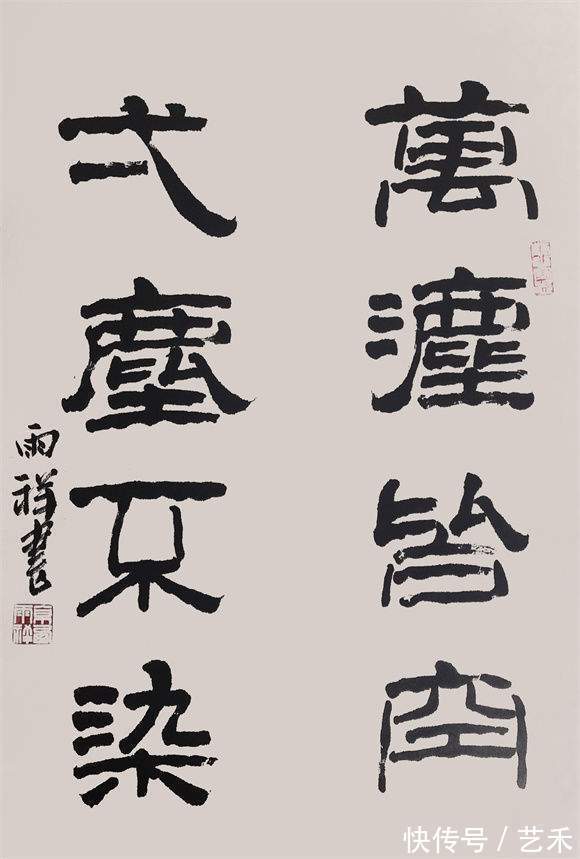 萬灋皆空
弌塵不染
雨祥書
快传号 / 艺禾